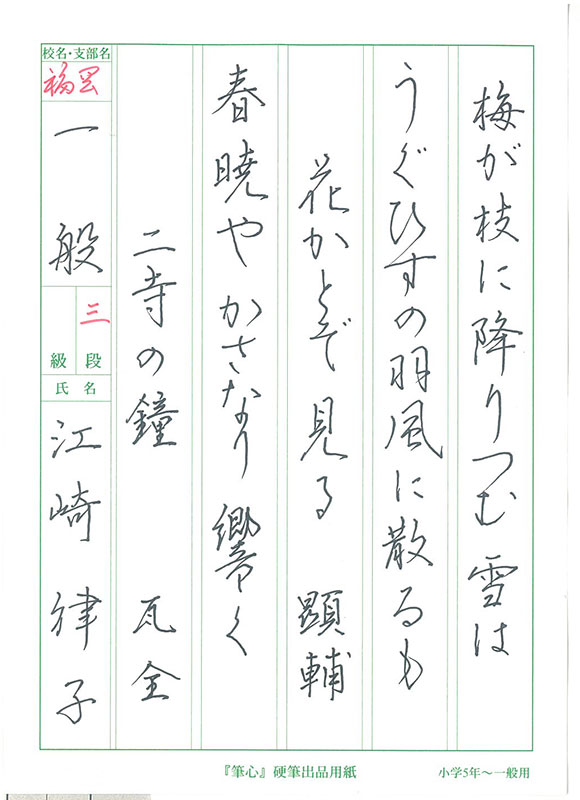 梅が枝に降りつむ雪は
うぐひすの羽風に散るも
花かとぞ見る 顕輔
春暁やかさなり響く
二寺の鐘 瓦全
校名・支部名
福岡
一般
三段
級
氏名
江崎律子
『筆心』硬筆出品用紙
小学5年～一般用